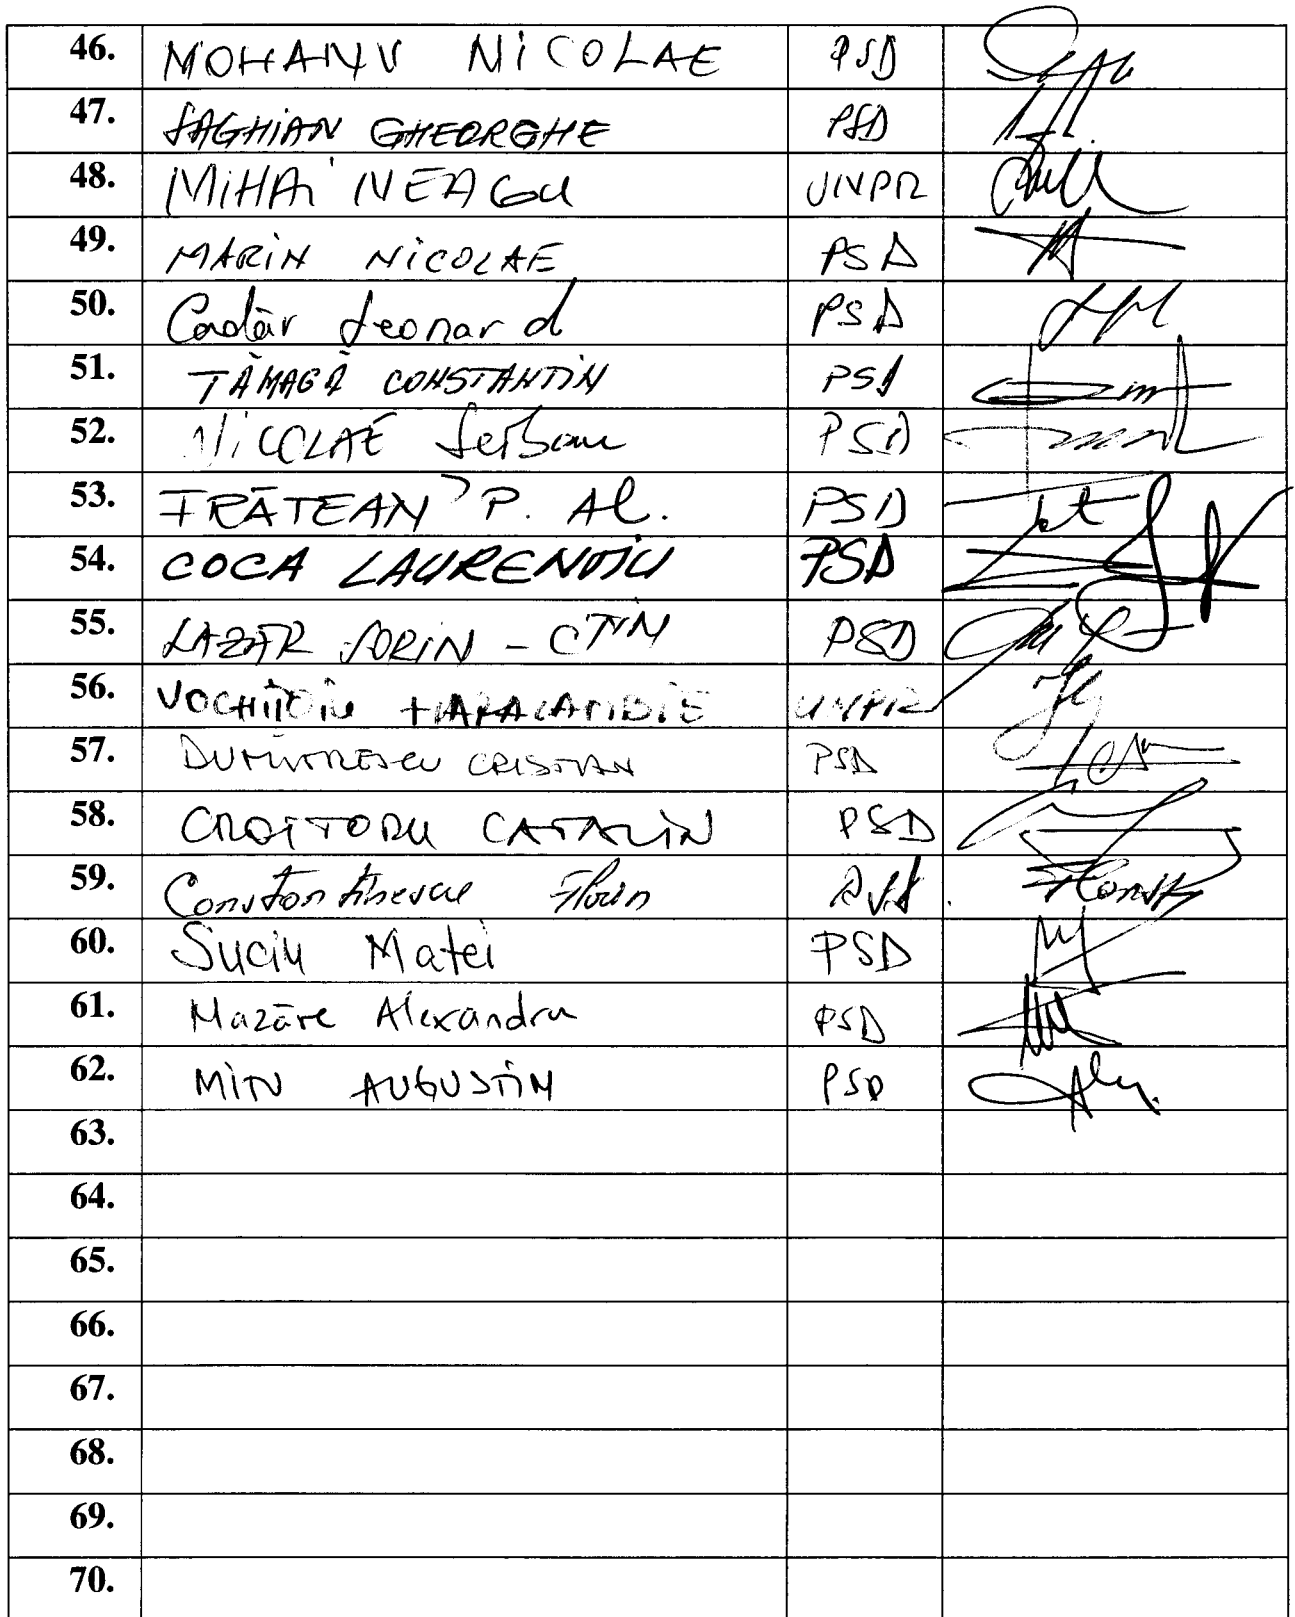 46. MOHANU NICOLAE PSD
47. SAGHIAN GHEORGHE PSD
48. MIHAI NEAGU UNPR
49. MARIN NICOLAE PSD
50. Cadăr Leonard PSD
51. TĂMAGĂ CONSTANTIN PSD
52. NICOLAE Serban PSD
53. FRĂTEAN P. Al. PSD
54. COCA LAURENȚIU PSD
55. LAZĂR SORIN - CTIN PSD
56. VOCHIȚOIU HARALAMBIE UNPR
57. DUMITRESCU CRISTIAN PSD
58. CROITORU CATALIN PSD
59. Constantinescu Florin
60. Suciu Matei PSD
61. Mazăre Alexandru PSD
62. MITU AUGUSTIN PSD
63.
64.
65.
66.
67.
68.
69.
70.